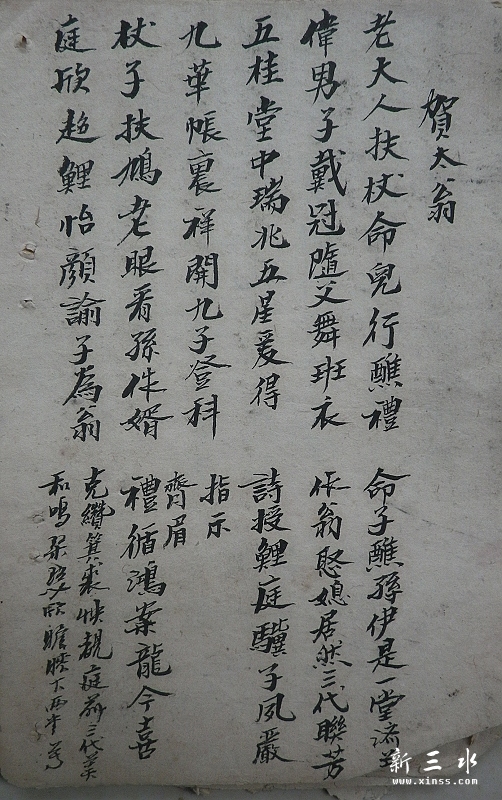 賀太翁
老大人扶杖命兒行醮禮
偉男子戴冠隨父舞班衣
五桂堂中瑞兆五星爰得
九華帳裏祥開九子登科
杖子扶鳩老眼看孫作婿
庭欣趨鯉怡顏諭子為翁
命子醮孫伊是一堂濟美
作翁娶媳居然三代聯芳
詩授鯉庭驥子夙嚴
指示
齊眉
禮循鴻案龍今喜
克纘箕裘快覩庭前三代英
和鳴琴瑟欣瞻膝下兩年
新三水
www.xinss.com